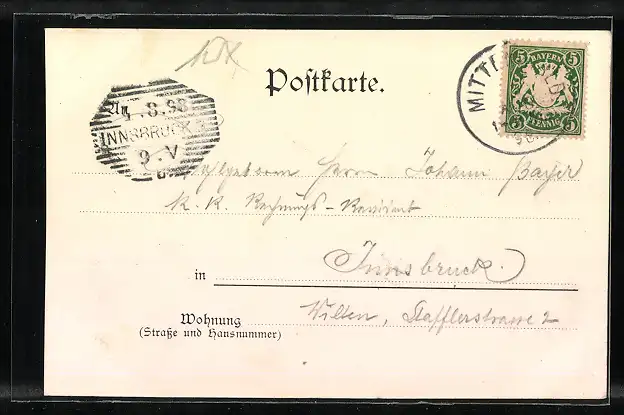 Postkarte.
BAYERN
5 5
PFENNIG
5 5
MITTE
.8.98
INNSBRUCK
9.V
Herrn Johann Bayer
k. k. Rechnungs-Revident
in Innsbruck.
Wohnung Wilten, Stafflerstrasse 2
(Straße und Hausnummer)